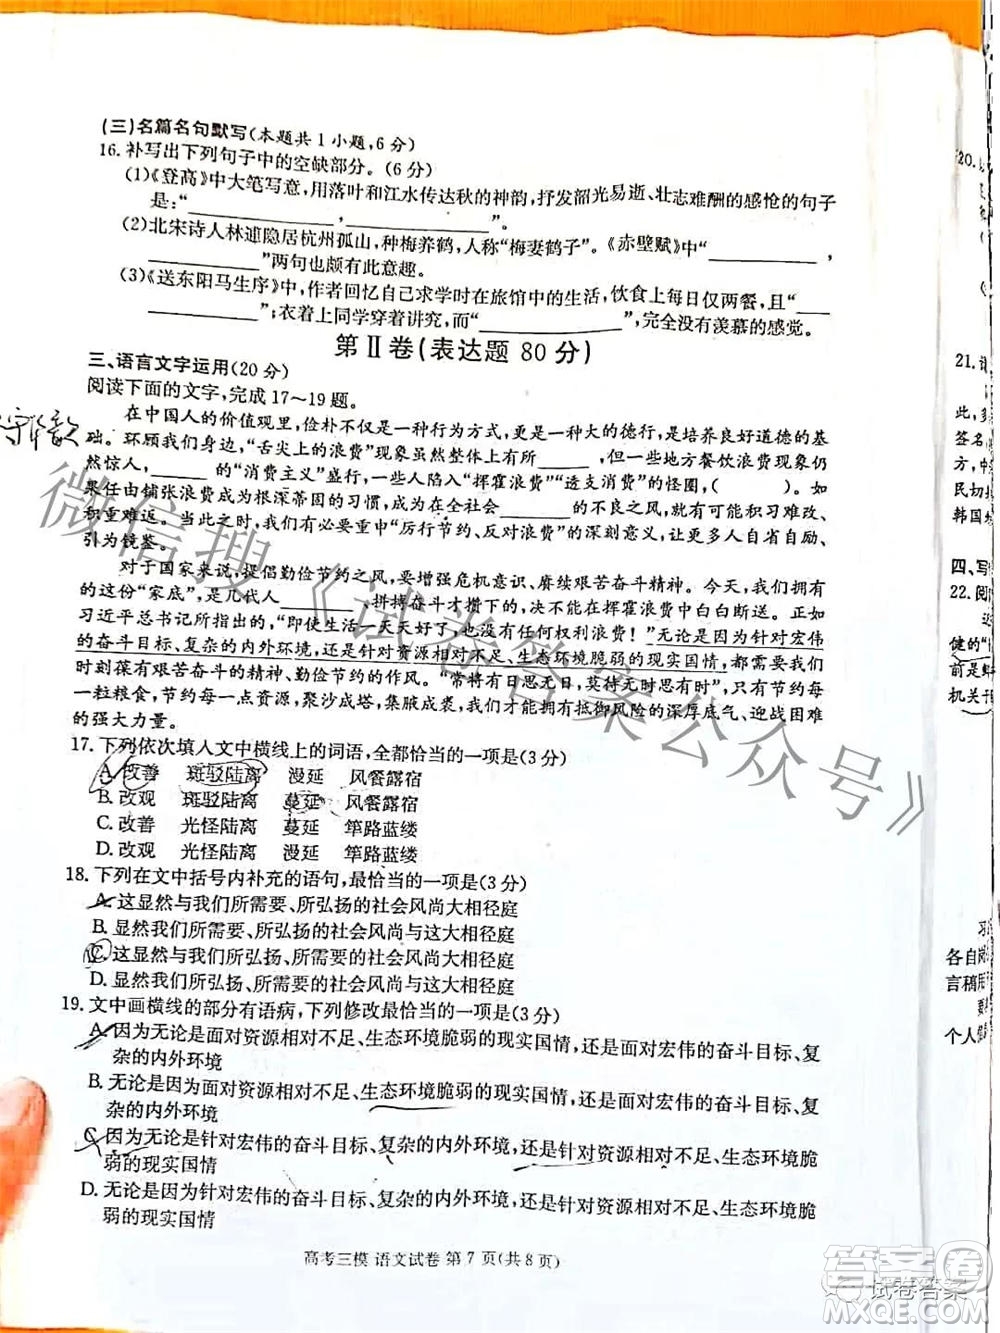 (三)名篇名句默写(本题共1小题,6分)
16.补写出下列句子中的空缺部分。(6分)
(1)《登高》中大笔写意,用落叶和江水传达秋的神韵,抒发韶光易逝、壮志难酬的感怆的句子
是:“____________,____________”。
(2)北宋诗人林逋隐居杭州孤山,种梅养鹤,人称“梅妻鹤子”。《赤壁赋》中“____________,
____________”两句也颇有此意趣。
(3)《送东阳马生序》中,作者回忆自己求学时在旅馆中的生活,饮食上每日仅两餐,且“____
____________”;衣着上同学穿着讲究,而“____________”,完全没有羡慕的感觉。
第Ⅱ卷(表达题 80分)
三、语言文字运用(20分)
阅读下面的文字,完成17～19题。
在中国人的价值观里,俭朴不仅是一种行为方式,更是一种大的德行,是培养良好道德的基
础。环顾我们身边,“舌尖上的浪费”现象虽然整体上有所______,但一些地方餐饮浪费现象仍
然惊人,______的“消费主义”盛行,一些人陷入“挥霍浪费”“透支消费”的怪圈,(      )。如
果任由铺张浪费成为根深蒂固的习惯,或在全社会______的不良之风,就可能积习难改、
积重难返。当此之时,我们有必要重申“厉行节约、反对浪费”的深刻意义,让更多人自省自励、
引为镜鉴。
对于国家来说,提倡勤俭节约之风,要增强危机意识、赓续艰苦奋斗精神。今天,我们
的这份“家底”,是几代人______、拼搏奋斗才攒下的,不应在挥霍浪费中白白断送。正如
习近平总书记所指出的,“即使生活一天天好了,也没有任何权利浪费!”无论是因为针对宏伟
的奋斗目标、复杂的内外环境,还是针对资源相对不足、生态环境脆弱的现实国情,都需要我们
时刻葆有艰苦奋斗的精神、勤俭节约的作风。“常将有日思无日,莫待无时思有时”,节约每
一粒粮食,节约每一份资源,聚沙成塔,集腋成裘,就会成为抵御风险的深厚底气、迎战困难
的强大力量。
17.下列依次填入文中横线上的词语,全部恰当的一项是(3分)
A.改善 斑驳陆离 漫延 风餐露宿
B.改观 斑驳陆离 蔓延 风餐露宿
C.改善 光怪陆离 蔓延 筚路蓝缕
D.改观 光怪陆离 漫延 筚路蓝缕
18.下列在文中括号内补充的语句,最恰当的一项是(3分)
A.这显然与我们所需要、所弘扬的社会风尚大相径庭
B.显然我们所需要、所弘扬的社会风尚与这大相径庭
C.这显然与我们所弘扬、所需要的社会风尚大相径庭
D.显然我们所弘扬、所需要的社会风尚与这大相径庭
19.文中画横线的部分有语病,下列修改最恰当的一项是(3分)
A.因为无论是面对资源相对不足、生态环境脆弱的现实国情,还是面对宏伟的奋斗目标、复
杂的内外环境
B.无论是因为面对资源相对不足、生态环境脆弱的现实国情,还是面对宏伟的奋斗目标、复
杂的内外环境
C.因为无论是针对宏伟的奋斗目标、复杂的内外环境,还是针对资源相对不足、生态环境脆
弱的现实国情
D.无论是因为针对宏伟的奋斗目标、复杂的内外环境,还是针对资源相对不足、生态环境脆
弱的现实国情
高考三模 语文试卷 第7页(共8页)
20.
21.
此,
签名
方,
民切
韩国
四、写
22.阅
健的“
前是
机关
各自
言稿
个人
微信搜《试卷答案公众号》
试卷答案
答案圈
MXQE.COM